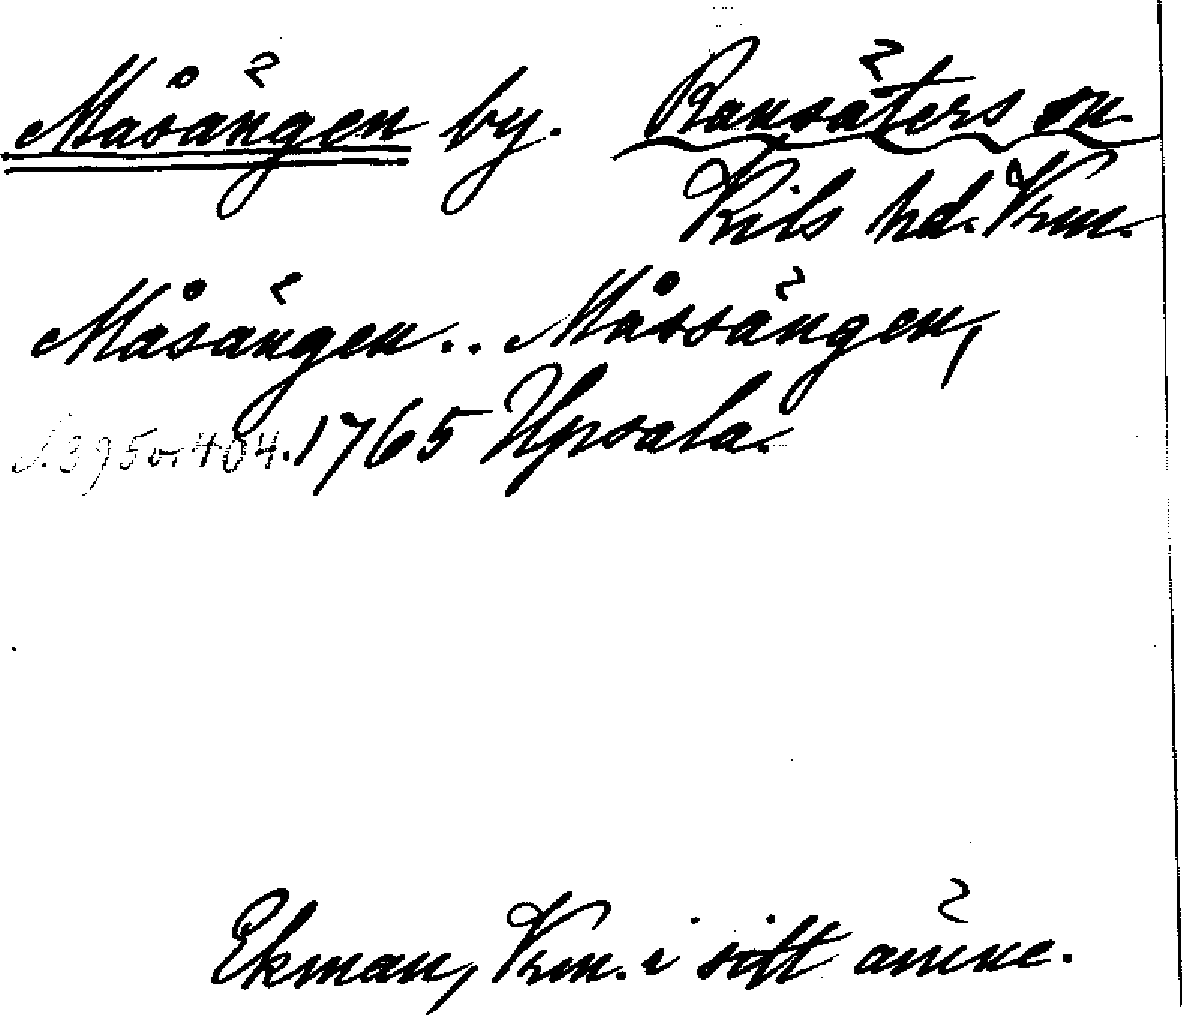 Måsängen by. Ransäters sn.
Kils hd. Vrm.
Måsängen.. Måssängen,
s. 395 o. 404. 1765 Upsala.
Ekman, Vrm. i sitt ämne.